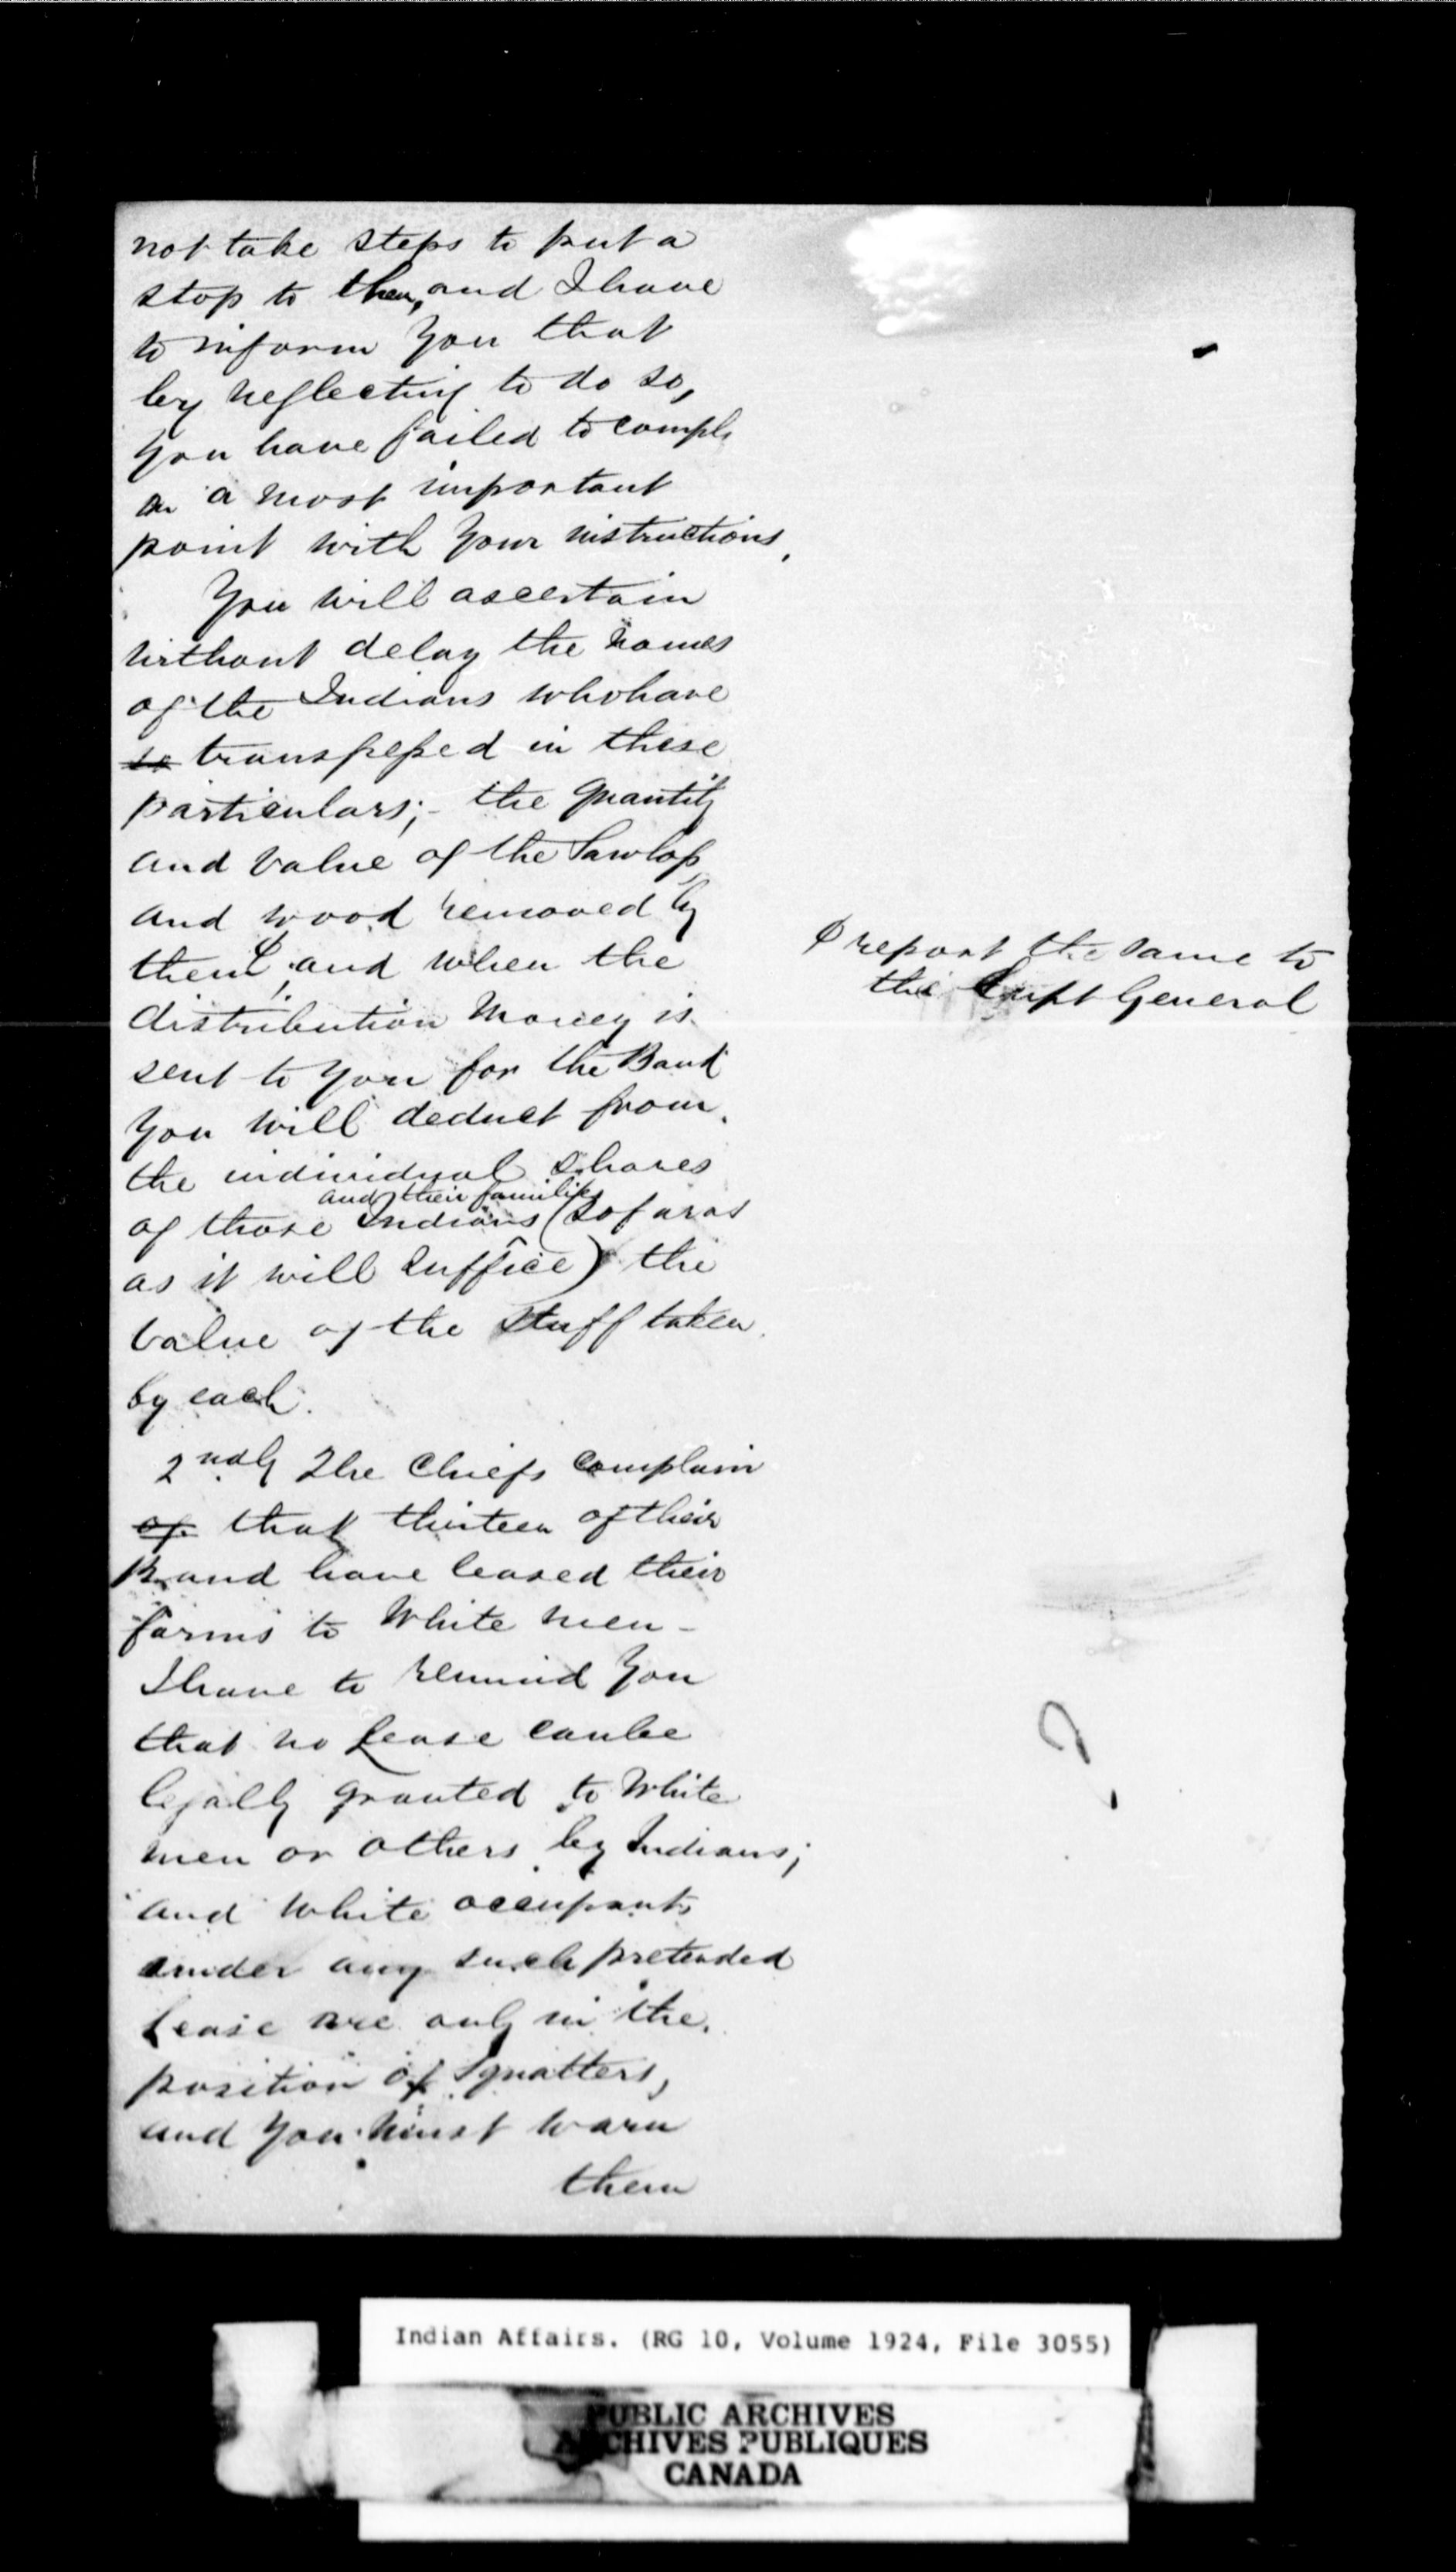 not take steps to put a
stop to them, and I have
to inform you that
by neglecting to do so,
you have failed to comply
on a most important
point with your instructions.
You will ascertain
without delay the names
of the Indians who have
so transpessed in these
particulars;- the quantity
and value of the Sawlogs
and wood removed by
them, and when the
distribution Money is
sent to you for the Band
you will deduct from
the individual shares
and their families
of those Indians (so far as
as it will suffice) the
value of the stuff taken
by each.
2ndly The Chiefs complain
of that thirteen of their
Band have leased their
farms to White men -
I have to remind you
that no Lease can be
legally granted to White
men or others by Indians;
and white occupants
under any such pretended
lease are only in the
position of Squatters,
and you must warn
them
& report the same to
the Supt General
Indian Affairs. (RG 10, Volume 1924, File 3055)
PUBLIC ARCHIVES
ARCHIVES PUBLIQUES
CANADA